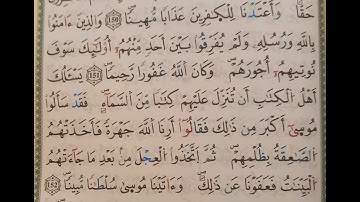 حَقًّا ۚ وَأَعْتَدْنَا لِلْكَٰفِرِينَ عَذَابًا مُّهِينًا ١٥٠ وَالَّذِينَ ءَامَنُوا
بِاللَّهِ وَرُسُلِهِ وَلَمْ يُفَرِّقُوا بَيْنَ أَحَدٍ مِّنْهُمْ أُولَٰئِكَ سَوْفَ
نُؤْتِيهِمْ أُجُورَهُمْ ۚ وَكَانَ اللَّهُ غَفُورًا رَّحِيمًا ١٥١ يَسْـَٔلُكَ
أَهْلُ الْكِتَٰبِ أَن تُنَزِّلَ عَلَيْهِمْ كِتَٰبًا مِّنَ السَّمَآءِ ۚ فَقَدْ سَأَلُوا
مُوسَىٰ أَكْبَرَ مِن ذَٰلِكَ فَقَالُوا أَرِنَا اللَّهَ جَهْرَةً فَأَخَذَتْهُمُ
الصَّٰعِقَةُ بِظُلْمِهِمْ ۚ ثُمَّ اتَّخَذُوا الْعِجْلَ مِن بَعْدِ مَا جَآءَتْهُمُ
الْبَيِّنَٰتُ فَعَفَوْنَا عَن ذَٰلِكَ ۚ وَءَاتَيْنَا مُوسَىٰ سُلْطَٰنًا مُّبِينًا ١٥٢